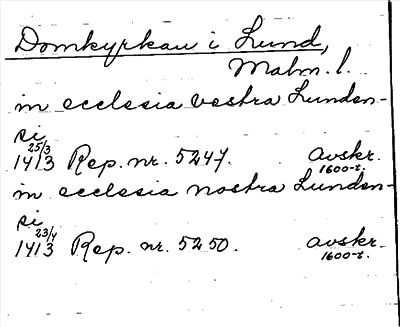 Domkyrkan i Lund,
Malm. l.
in ecclesia vestra Lunden-
si
25/3
1413 Rep. nr. 5247. Avskr.
1600-t.
in ecclesia nostra Lunden-
si
23/4
1413 Rep. nr. 5250. avskr.
1600-t.